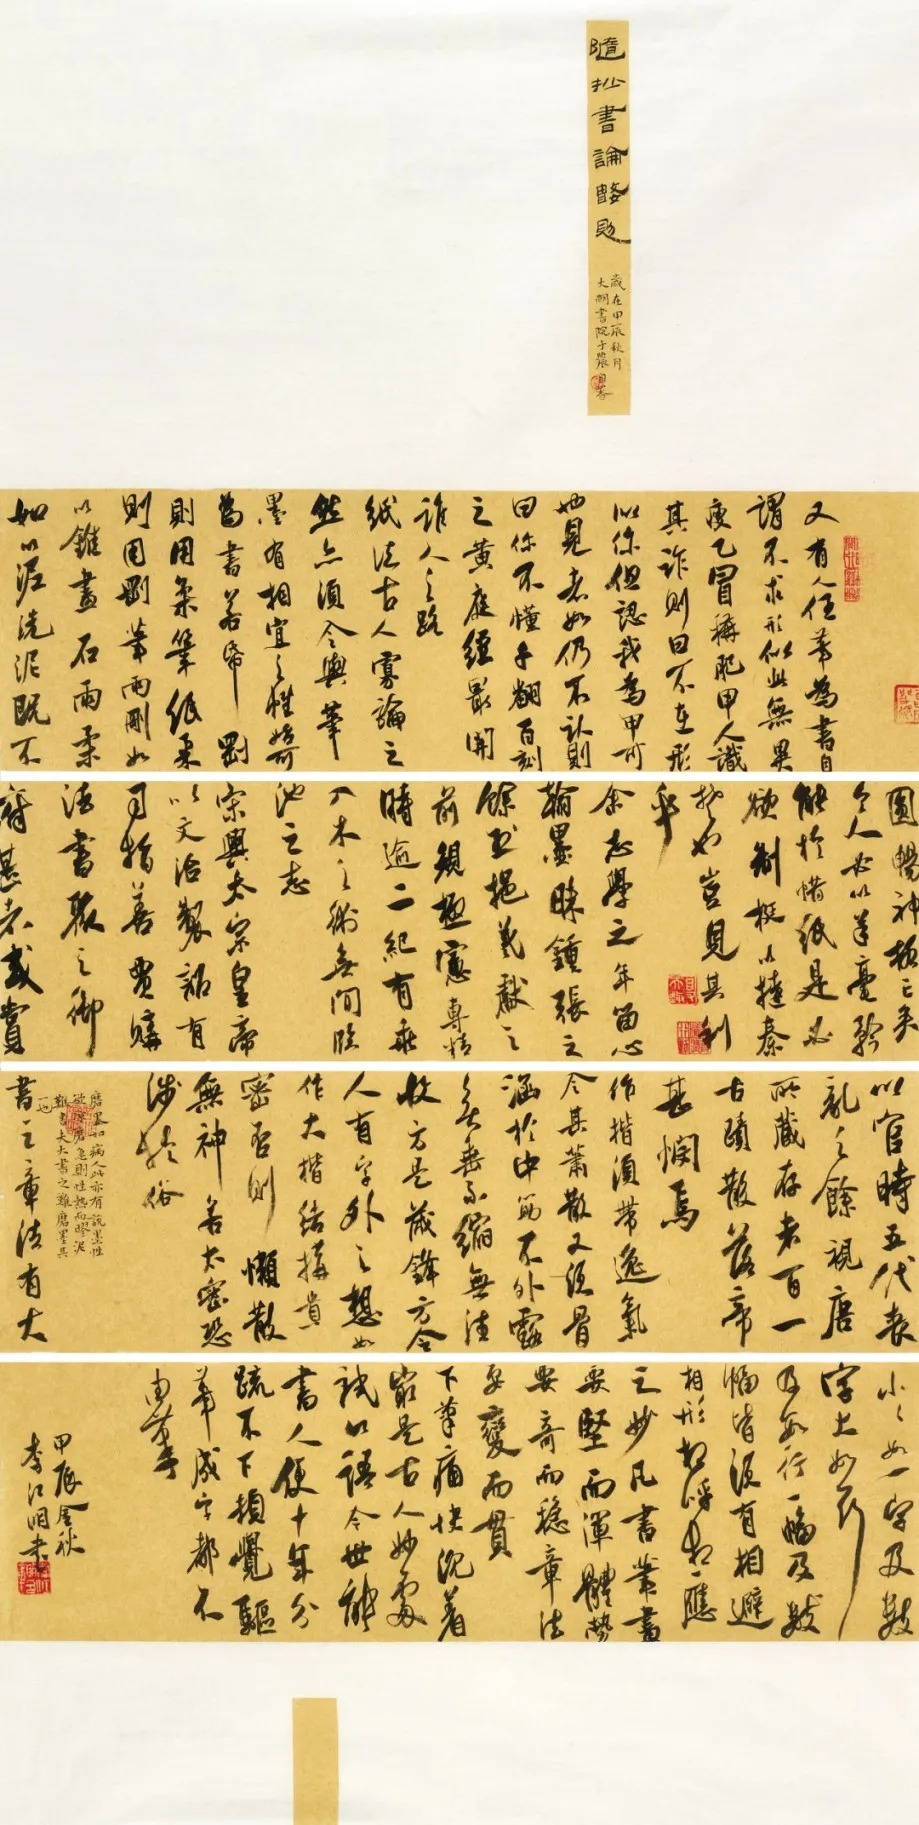 隨抄書論略則
歲在甲辰秋月
大明書院于農自署
又有人任筆為書自
謂不求形似此無異
瘦乙冒稱肥甲人識
其詐則曰不在形
似你但認我為甲可
也見者如仍不認則
曰你不懂千翻百刻
之黃庭經最開
誰人之路
紙法古人寡論之
然亦須令與筆
墨有相宜之性始可
為書若紙剛
則用柔筆紙柔
則用剛筆兩剛如
以錐畫石兩柔
如以泥洗泥既不
圓暢神格亡矣
今人必以羊毫矜
能於惜紙是必
欲制梃以撻秦
楚也豈見其利
乎
余志學之年留心
翰墨昧鍾張之
餘烈挹羲獻之
前規極慮專精
時逾二紀有乖
入木之術無間臨
池之志
宋興太宗皇帝
以文治製詔有
司捐善賈購
法書聚之御
府甚者或賞
以官時五代喪
亂之餘視唐
所藏存者百一
古蹟散落帝
甚憫焉
作楷須帶逸氣
令其蕭散又須骨
涵於中筋不外露
無垂不縮無往不
收方是藏鋒方令
人有字外之想如
作大楷結構貴
密否則懶散
無神若太密恐
涉於俗
磨墨如病人此亦有說墨性
書之章法有大
小小如一字及數
字大如一行
及數行一幅及數
幅皆須有相避
相形相呼相應
之妙凡書筆畫
要堅而渾體勢
要奇而穩章法
要變而貫
下筆痛快沉著
最是古人妙處
試以語今世能
書人便十年分
疏不下頓覺驅
筆成字都不
由筆
甲辰金秋